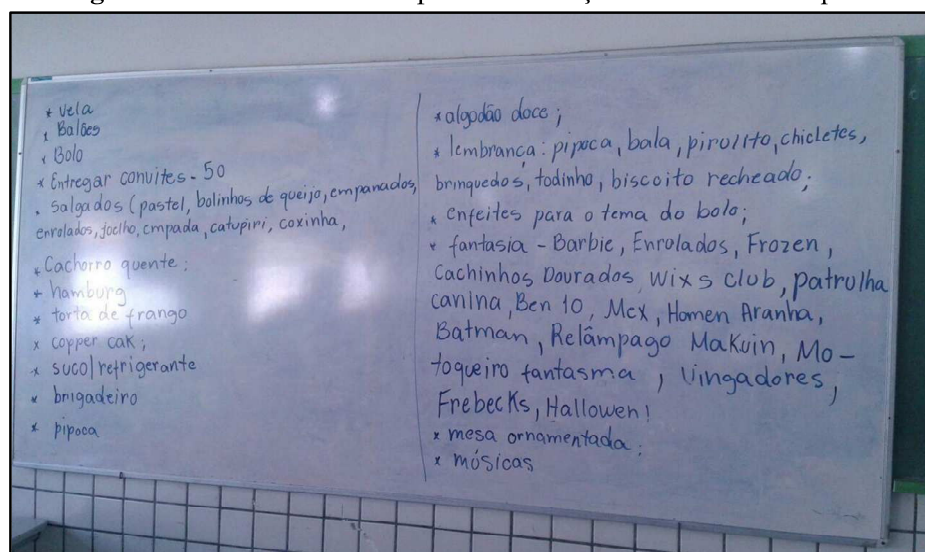 * vela
* Balões
* Bolo
* Entregar convites - 50
* Salgados (pastel, bolinhos de queijo, empanados,
enrolados, joelho, empada, catupiri, coxinha,
* Cachorro quente;
* hamburg
* torta de frango
* copper cak;
* suco/refrigerante
* brigadeiro
* pipoca
* algodão doce;
* lembrança: pipoca, bala, pirolito, chicletes,
brinquedos, todinho, biscoito recheado;
* enfeites para o tema do bolo;
* fantasia - Barbie, Enrolados, Frozen,
Cachinhos Dourados, Wixs Club, patrulha
canina, Ben 10, Mcx, Homen Aranha,
Batman, Relâmpago Makuin, Mo-
toqueiro fantasma, Vingadores,
Frebecks, Hallowen!
* mesa ornamentada;
* músicas